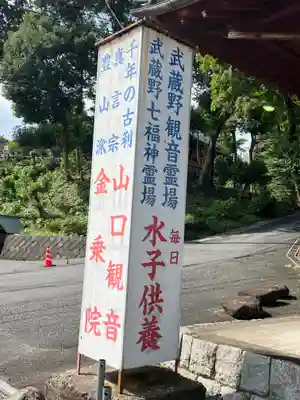 武蔵野観音霊場
武蔵野七福神霊場
毎日
水子供養
千年の古利
真言宗
豊山派
山口観音
金乗院